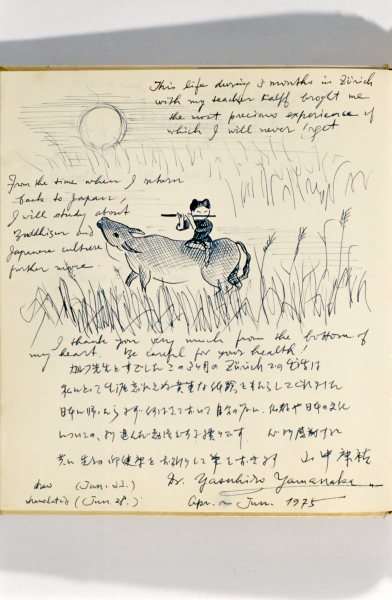 This life during 3 months in Zürich
with my teacher Kalff broght me
the most precious experience of
which I will never forget
From the time when I return
back to Japan,
I will study about
Buddhism and
Japanese culture
further more
I thank you very much from the bottom of
my heart. Be careful for your health!
カルフ先生とすごしたこの3ヶ月の Zürich での生活は
私にとって生涯忘れえぬ貴重な体験を
日本に 自分の 仏教や日本の文化
について
先生の御健康をお祈りして筆をおきます 山中康裕
drew (Jun. 22.) Dr. Yasuhiro Yamanaka
translated (Jun. 28.) Apr. ~ Jun. 1975